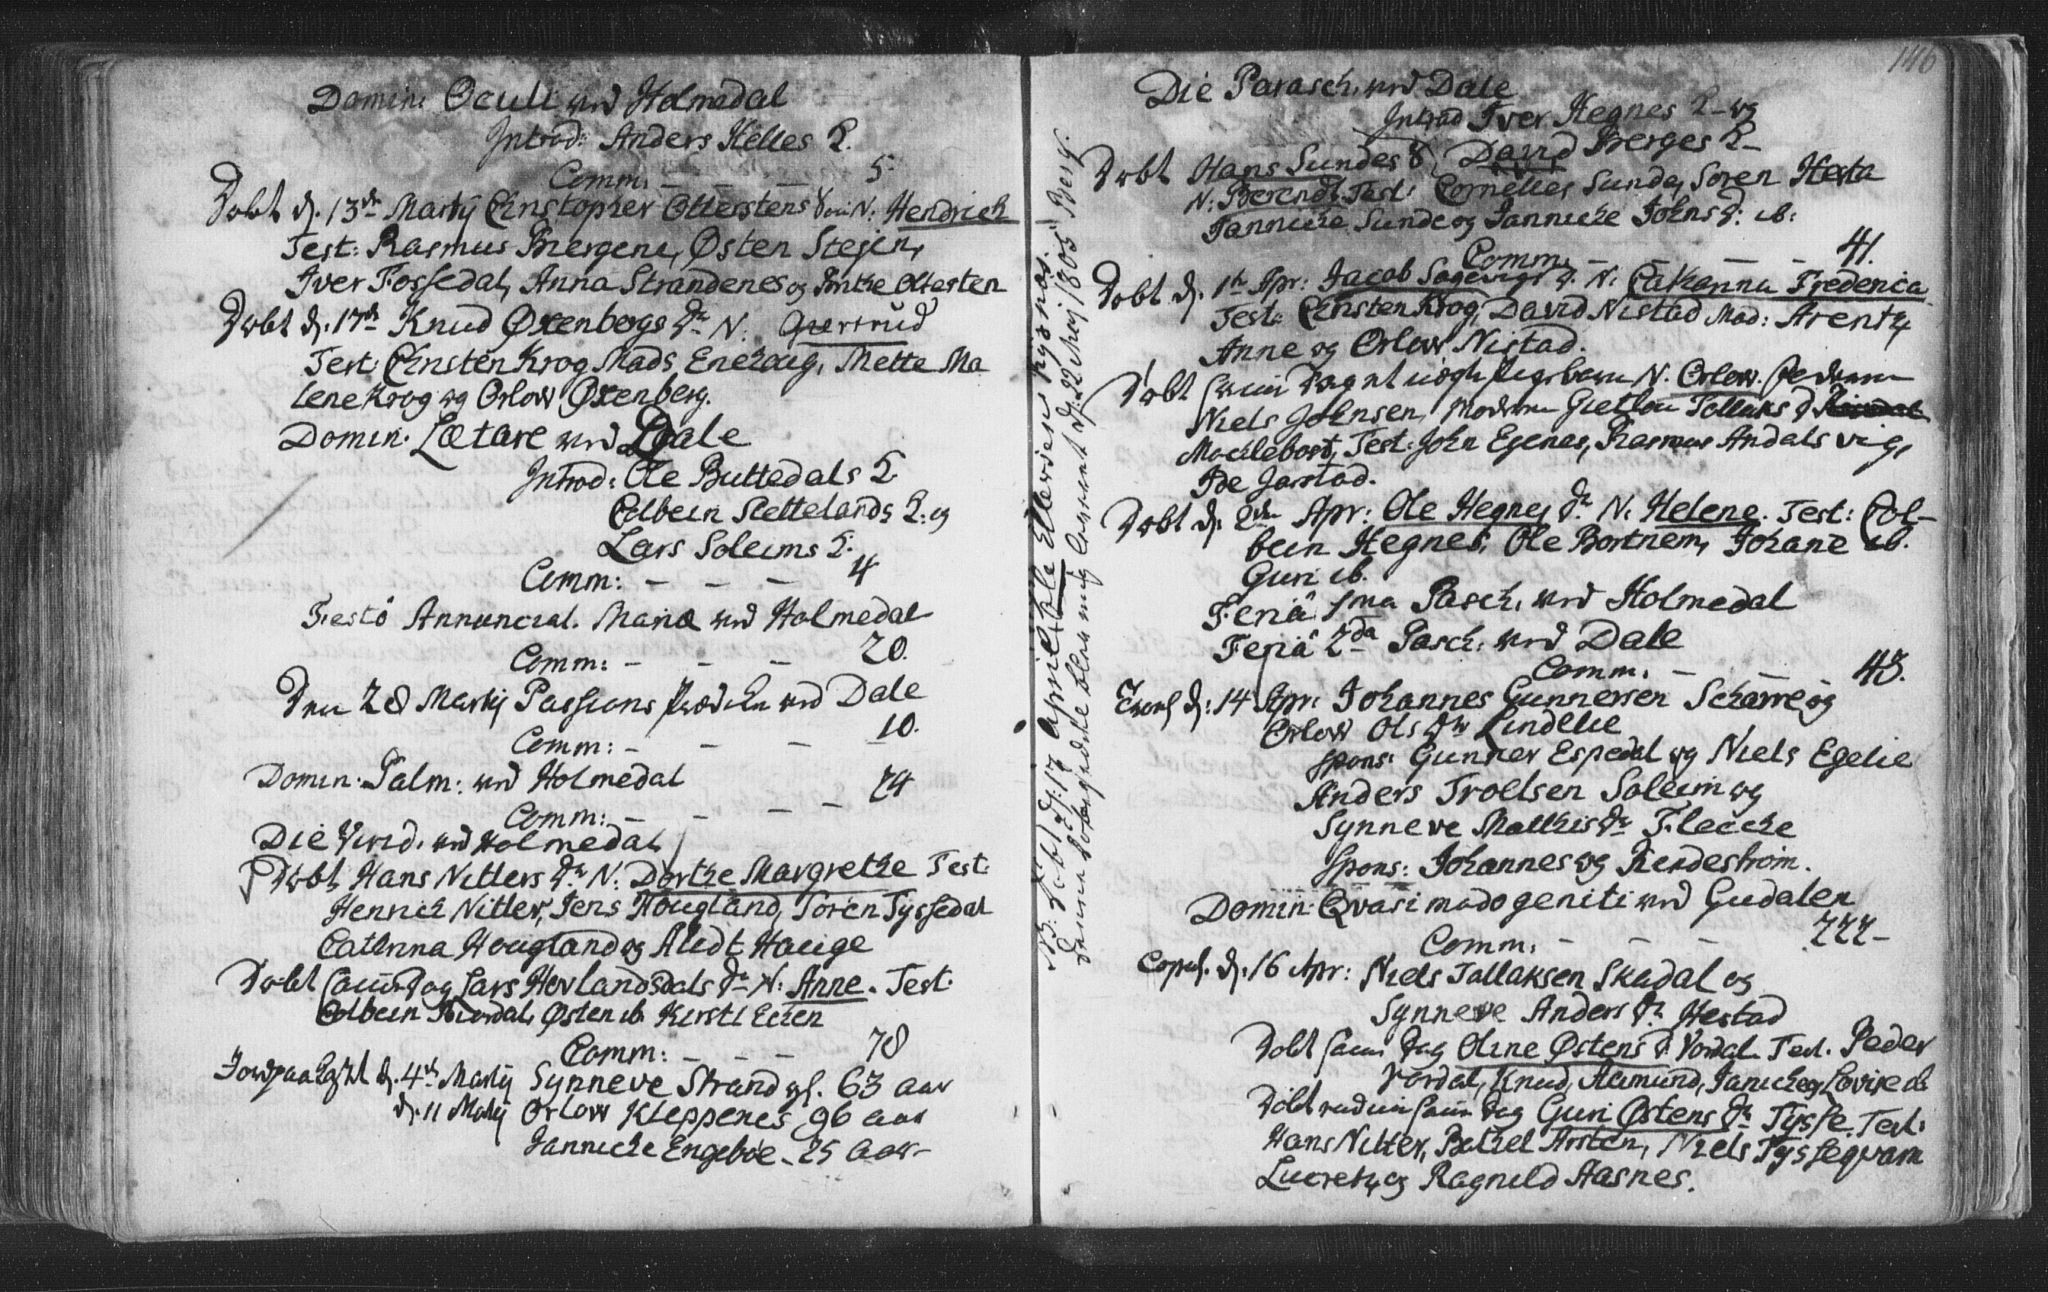 Domin: Oculi ved Holmedal
Introd: Anders Helles K.
Comm: — — — 5.
Døbt d. 13de Martij Christopher Otterstens Søn N: Hendrich
Test: Rasmus Bergene, Østen Stejen,
Iver Fossedal, Anna Strandenes og Ottersten
Døbt d. 17de Knud Øxenbergs Dr N. Giertrud
Test: Christen Krog, Mads Enehaug, Mette Ma
lene Krog og Orlow Øxenberg.
Domin. Lætare ved Dale
Introd: Ole Buttedals K.
Colbein Slettelands K: og
Lars Soleims K.
Comm: — — — 4
Festo Annunciat. Mariæ ved Holmedal
Comm: — — — 20.
Den 28 Martij Passions Prædiken ved Dale
Comm: — — — 10.
Domin. Palm: ved Holmedal
Comm: — — — 74
Die Virid. ved Holmedal
Døbt Hans Nitters Dr N: Dorthe Margrethe Test:
Henrich Nitter, Jens Hougland, Søren Tyssedal
Cathrina Hougland og Hauge
Døbt samme Dag Lars Hovlandsdals Dr N: Anne. Test:
Colbein Østen ib. Kirsti Ecken
Comm: — — — 78
Jordpaakast d. 4de Martij Synneve Strand gl. 63 aar
d. 11 Martij Orlow Kleppenes 96 aar
Jannicke Engebøe 25 aar
NB: Døbt d: 17 April Ole Ellersen
1805 Berg.
140
Die Parasch. ved Dale
Introd Iver Hegnes K og
David Berges K
Døbt Hans Sundes S
N: Berendt, Test: Cornelius Sunde, Søren Hesta
Jannicke Sunde og Jannicke Johns D: ib:
Comm: — — — 41.
Døbt d. 1te Apr: Jacob D. N: Catharina Frederica
Test: Christen Krog, David Nistad Mad: Arentz,
Anne og Orlow Nistad.
Døbt samme Dag et uægte Pigebarn N. Orlow. Faderen
Niels Johnsen, Moderen Tollaks D
Macklebost, Test: John Egenes, Rasmus Andalsvig,
Jarstad.
Døbt d. 2den Apr: Ole Hegnes Dr N: Helene. Test: Col-
bein Hegnes, Ole Bortnem, Johane ib.
Guri ib.
Feriâ 1ma Pasch. ved Holmedal
Feriâ 2da Pasch: ved Dale
Comm: — — 43.
d: 14 Apr: Johannes Gunnersen Scharre og
Orlow Ols Dr Lindelie
Spons: Gunner Espedal og Niels Egelie
Anders Troelsen Soleim og
Synneve Matthis Dr Flecke
Spons: Johannes og
Domin: Qvasi modo geniti ved Gudalen
Comm: — — — 222 —
Copul. d. 16 Apr: Niels Tollaksen Skadal og
Synneve Anders Dr Hestad
Døbt samme Dag Oline Østens D Vordal Test. Peder
Vordal, Knud, Aamund, Jannicke og Lovise ib
Døbt samme Dag Guri Østens Dr Tysse Test:
Hans Nitter, Bethel Arsten, Niels Tysseqvam
Lucretz, og Ragnild Aasnes.